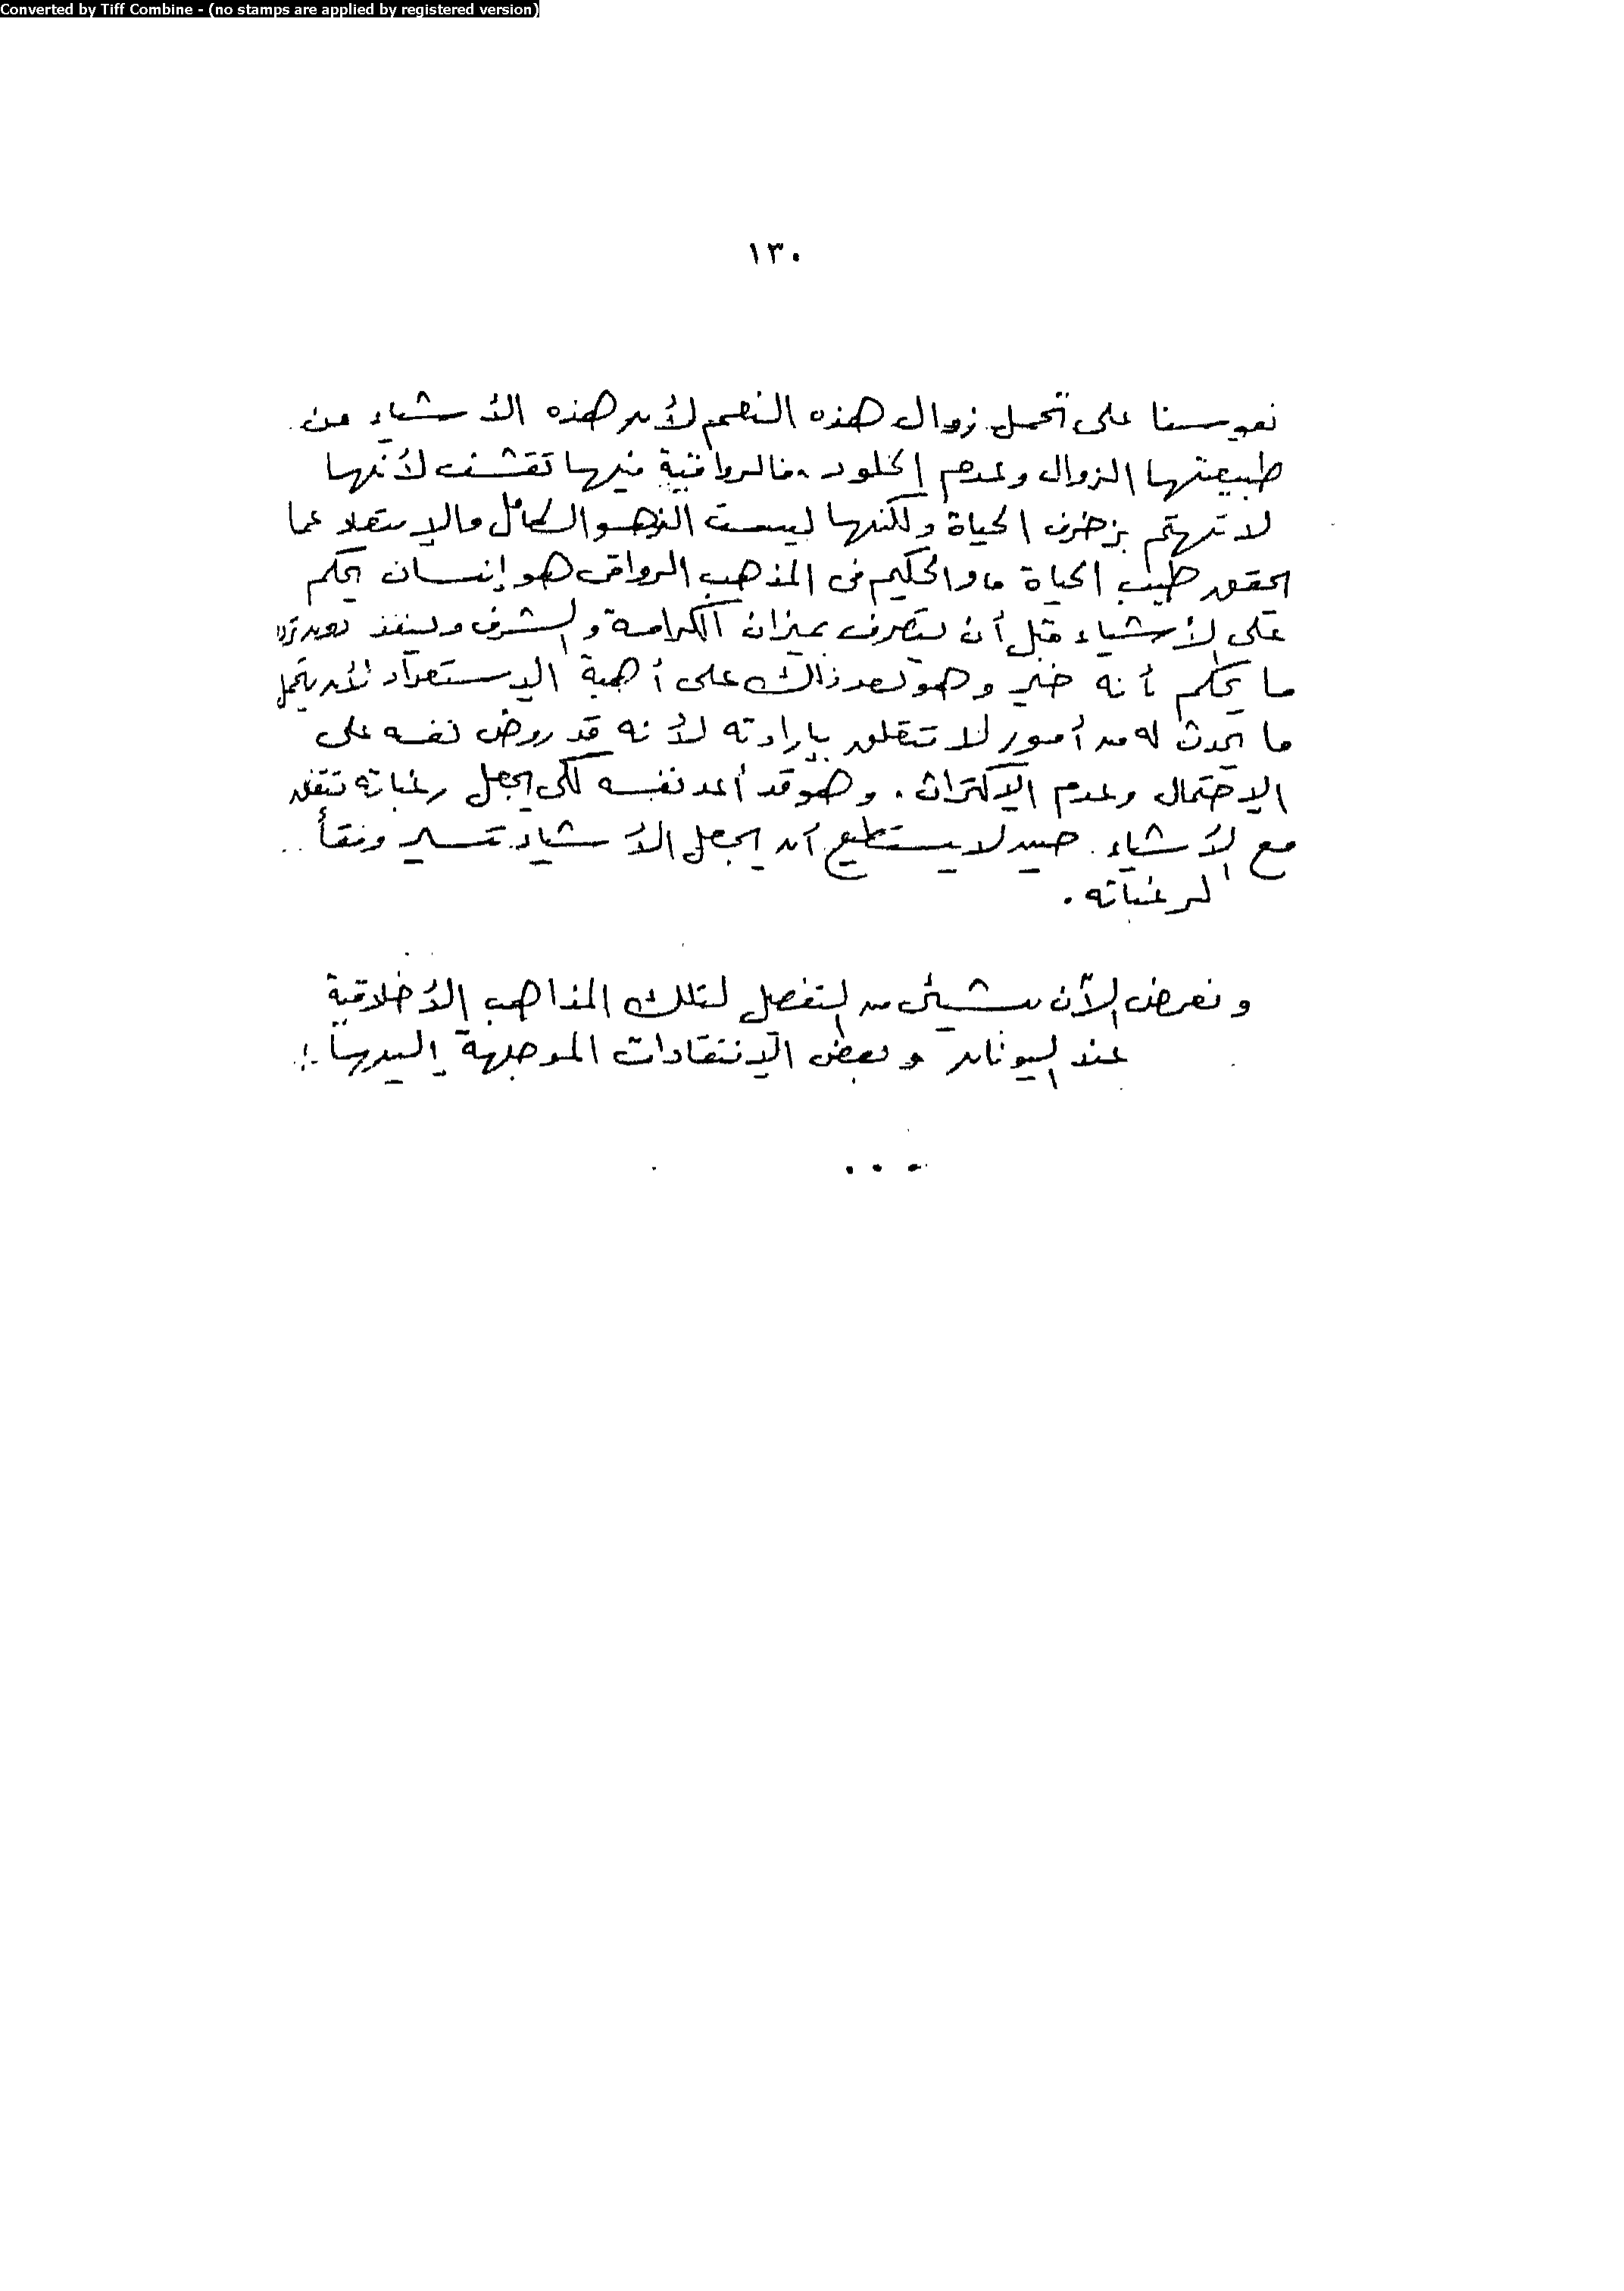 Converted by Tiff Combine - (no stamps are applied by registered version)
١٣٠
نفوسنا على تحمل زوال هذه النعم لأن هذه الأشياء من
طبيعتها الزوال وعدم الخلود، فالرواقية فيها تقشف لأنها
لا تهتم بزخرف الحياة ولكنها ليست الزهو الكامل والإبتعاد عما
يحقق طيب الحياة والحكيم فى المذهب الرواقى هو إنسان يحكم
على الأشياء قبل أن يتصرف بميزان الكرامة والشرف وينفذ
ما يحكم بأنه خير وهو بعد ذلك على أهبة الإستعداد لأن يتحمل
ما يحدث له من أمور لا تتعلق بإرادته لأنه قد روض نفسه على
الإحتمال وعدم الإكتراث. وهو قد أعد نفسه لكى يجعل رغباته تتفق
مع الأشياء حين لا يستطيع أن يجعل الأشياء تسير وفقاً
لرغباته.
ونعرض الآن بشيئ من التفصل لتلك المذاهب الأخلاقية
عند اليونان وبعض الإنتقادات الموجهة إليها:
...